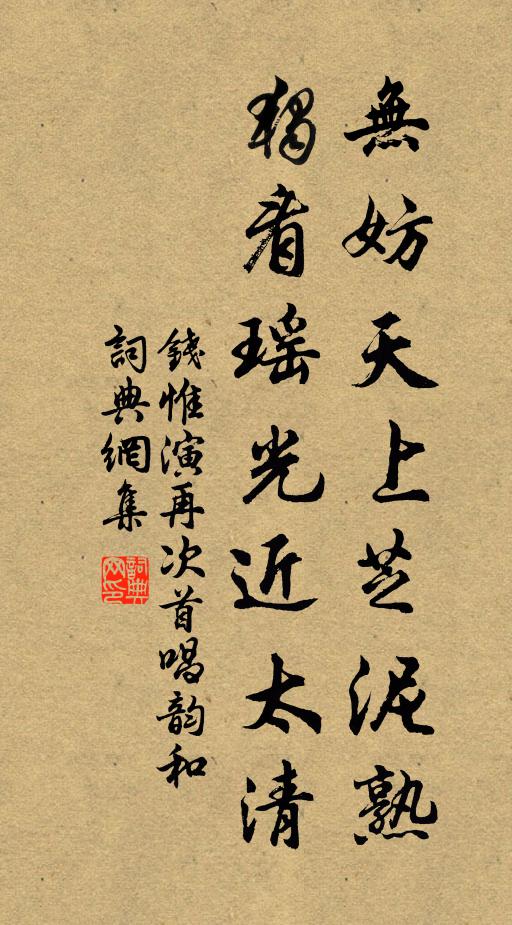 無妨天上芝泥熟
獨看瑶光近太清
錢惟演再次首唱韵和
詞典網集
詞典
网印